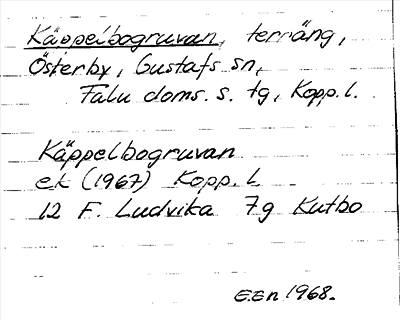 Käppelbogruvan, terräng,
Österby, Gustafs sn,
Falu doms. s. tg, Kopp. l.
Käppelbogruvan
ek (1967) Kopp. l.
12 F. Ludvika 7g Kutbo
E.En 1968.